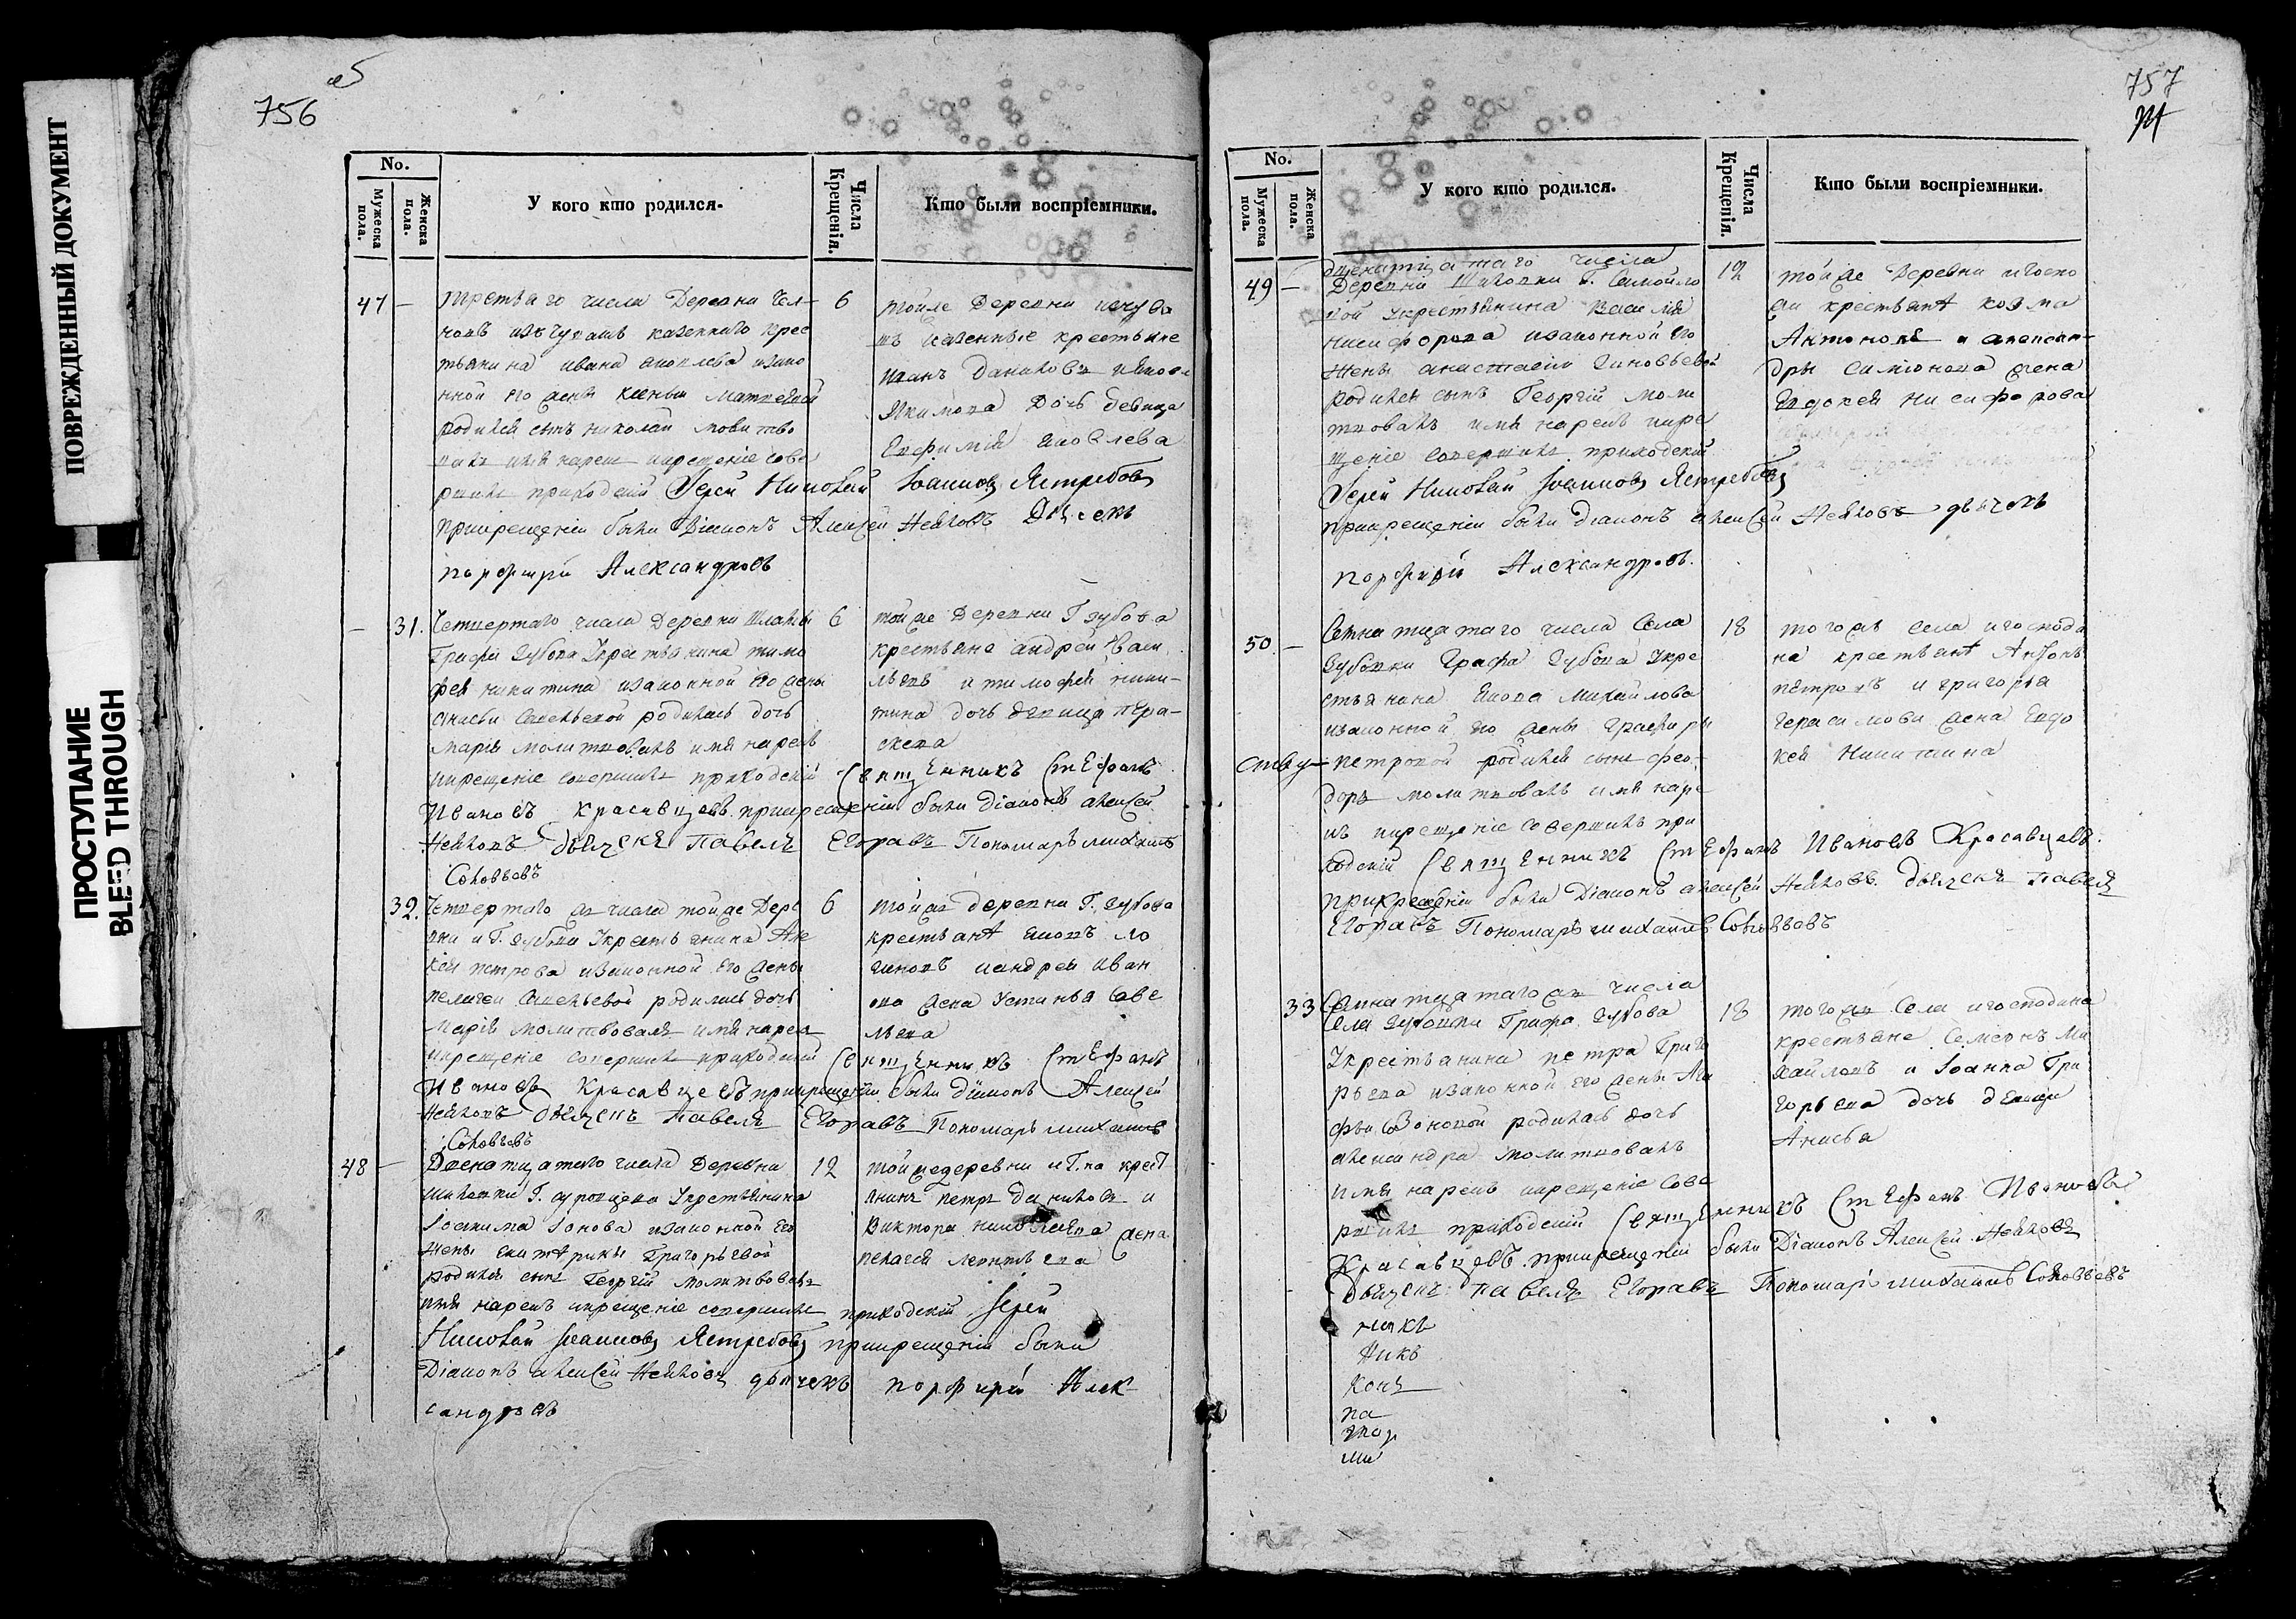 ПОВРЕЖДЕННЫЙ ДОКУМЕНТ
ПРОСТУПАНИЕ
BLEED THROUGH
756
No.
Мужеска пола.
Женска пола.
У кого кто родился.
Числа Крещенія.
Кто были воспріемники.
47 — третьяго числа Деревни
казеннаго крес
тьянина ивана яковлева изако
нной его жены ксеньи матвеевой
родился сынъ николай молитво
валъ имя нарекъ икрещеніе сове
ршилъ приходскій Іерей Николай Іоанновъ Ястребовъ
прикрещеніи были Діаконъ Алексей Нейловъ Дьячекъ
порфирій Александровъ
6 тойже Деревни
казенные крестьяне
иванъ Даниловъ
Якимова Дочь девица
Евфимія яковлева
31. Четвертаго числа Деревни
Графа Зубова Укрестьянина тимо
фея никитина изаконной его жены
анисьи савельевой родилась дочь
марія молитвовалъ имя нарекъ
икрещеніе совершилъ приходскій Священникъ Стефанъ
Ивановъ Красавцевъ прикрещеніи были діаконъ алексей
Нейловъ дьячекъ Павелъ Егоравъ Пономарь михаилъ
Соловьевъ
6 тойже Деревни Г зубова
крестьяне андрей Васи
льевъ и тимофей ники-
тина дочь девица пара-
скева
32. Четвертаго жъ числа тойже Дере
вни и Г. зубова Укрестьянина Але
ксея петрова изаконной его жены
пелагеи савельевой родилась дочь
марія молитвовалъ имя нарекъ
икрещеніе совершилъ приходскій Священникъ Стефанъ
Ивановъ Красавцевъ прикрещеніи были діаконъ Алексей
Нейловъ дьячекъ павелъ Егоравъ Пономарь михаилъ
Соловьевъ
6 тойже деревни Г. зубова
крестьяне
иандрея Иван
ова жена Устинья Саве
льева
48 — Двенатцатаго числа Деревни
Укрестьянина
Іоакима Іонова изаконной его
жены екатерины Григорьевой
родился сынъ Георгій молитвовалъ
имя нарекъ икрещеніе совершилъ приходскій Іерей
Николай Іоанновъ Ястребовъ прикрещеніи были
Діаконъ алексей Нейловъ дьячекъ порфирій Алек-
сандровъ
12 тойже деревни и Г.на крест
янинъ петръ даниловъ и
Виктора жена
пелагея леонтьева
757
No.
Мужеска пола.
Женска пола.
У кого кто родился.
Числа Крещенія.
Кто были воспріемники.
49 — двенатцатаго числа
Деревни Г. Самойло
вой укрестьянина Василья
никифорова изаконной его
жены анастасіи Зиновьевой
родился сынъ Георгій моли
твовалъ имя нарекъ икре
щеніе совершилъ приходскій
Іерей Николай Іоанновъ Ястребовъ
прикрещеніи были діаконъ алексей Нейловъ дьячекъ
порфирій Александровъ.
12 тойже Деревни игоспо
жи крестьяне козма
Антоновъ и александ-
ры симіонова жена
Евдокея никифорова
50. — Семнатцатаго числа Села
Зубовки Графа Зубова Укре
стьянина михайлова
изаконной его жены
петровой родился сынъ фео-
доръ молитвовалъ имя наре
къ икрещеніе совершилъ при
ходскій Священникъ Стефанъ Ивановъ Красавцевъ.
прикрещеніи были Діаконъ алексей Нейловъ. дьячекъ павелъ
Егоравъ Пономарь михаилъ Соловьевъ
18 тогожъ села игосподи
на крестьяне Антонъ
петровъ и григорья
герасимова жена Евдо
кея Никитина
33 Семнатцатаго жъ числа
Села Зубовки Графа Зубова
Укрестьянина петра Григо
рьева изаконной его жены Ма
рфы родилась дочь
александра молитвовалъ
имя нарекъ икрещеніе сове
ршилъ приходскій Священникъ Стефанъ Ивановъ
Красавцевъ прикрещеніи были Діаконъ Алексей Нейловъ
дьячекъ павелъ Егоравъ Пономарь михаилъ Соловьевъ
18 тогожъ Села игосподина
крестьяне Семенъ Ми
хайловъ и Іоанна Гри
горьева дочь девица
Анисья